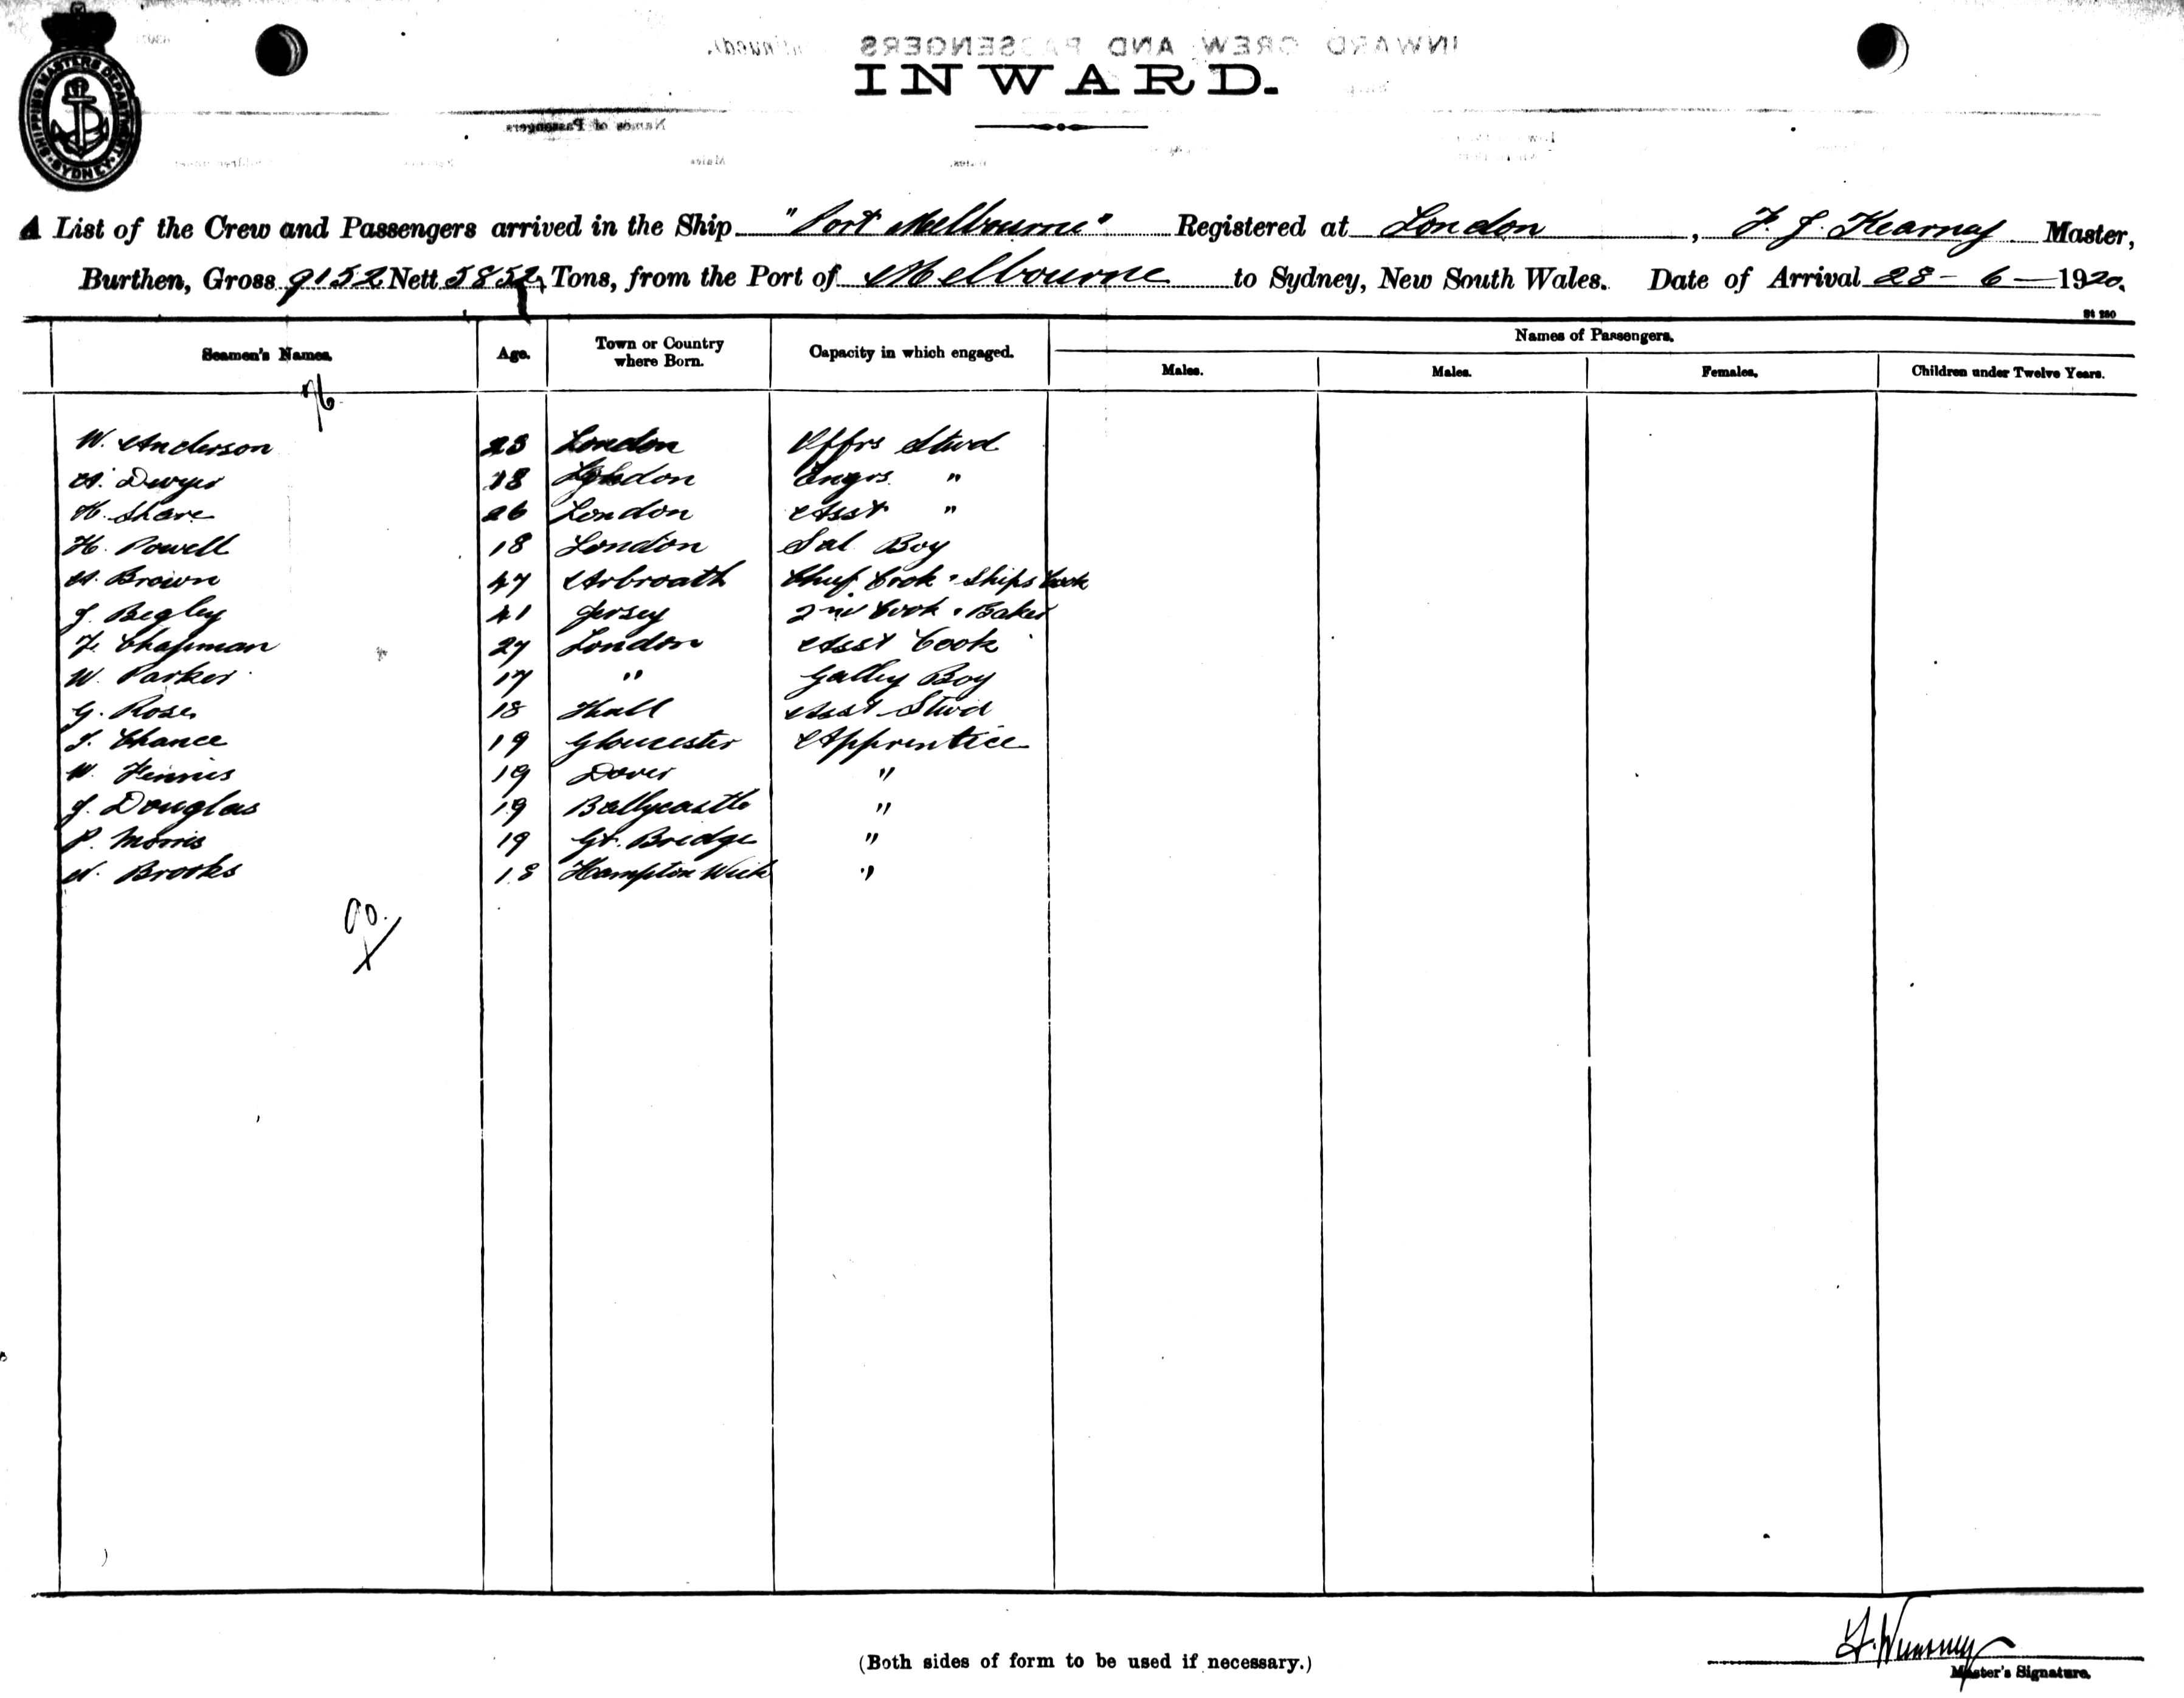 SHIPPING MASTERS DEPARTMENT. SYDNEY
INWARD.
A List of the Crew and Passengers arrived in the Ship "Port Melbourne" Registered at London, F. J. Kearney Master,
Burthen, Gross 9152 Nett 5852 Tons, from the Port of Melbourne to Sydney, New South Wales. Date of Arrival 28-6-1920.
St 280
Seamen's Names. Age. Town or Country where Born. Capacity in which engaged. Names of Passengers.
Males. Males. Females. Children under Twelve Years.
76
W. Anderson 23 London Offrs Stwd
A. Dwyer 18 London Engrs "
H. Share 26 London Asst "
H. Powell 18 London Sal Boy
A. Brown 47 Arbroath Chief Cook & Ships Cook
J. Begley 41 Jersey 2nd Cook & Baker
F. Chapman 27 London Asst Cook
W. Parker 17 " Galley Boy
G. Rose 18 Hull Asst Stwd
T. Chance 19 Gloucester Apprentice
W. Finnis 19 Dover "
J. Douglas 19 Ballycastle "
P. Morris 19 Gt. Bridge "
W. Brooks 18 Hampton Wick "
90.
(Both sides of form to be used if necessary.)
Master's Signature.